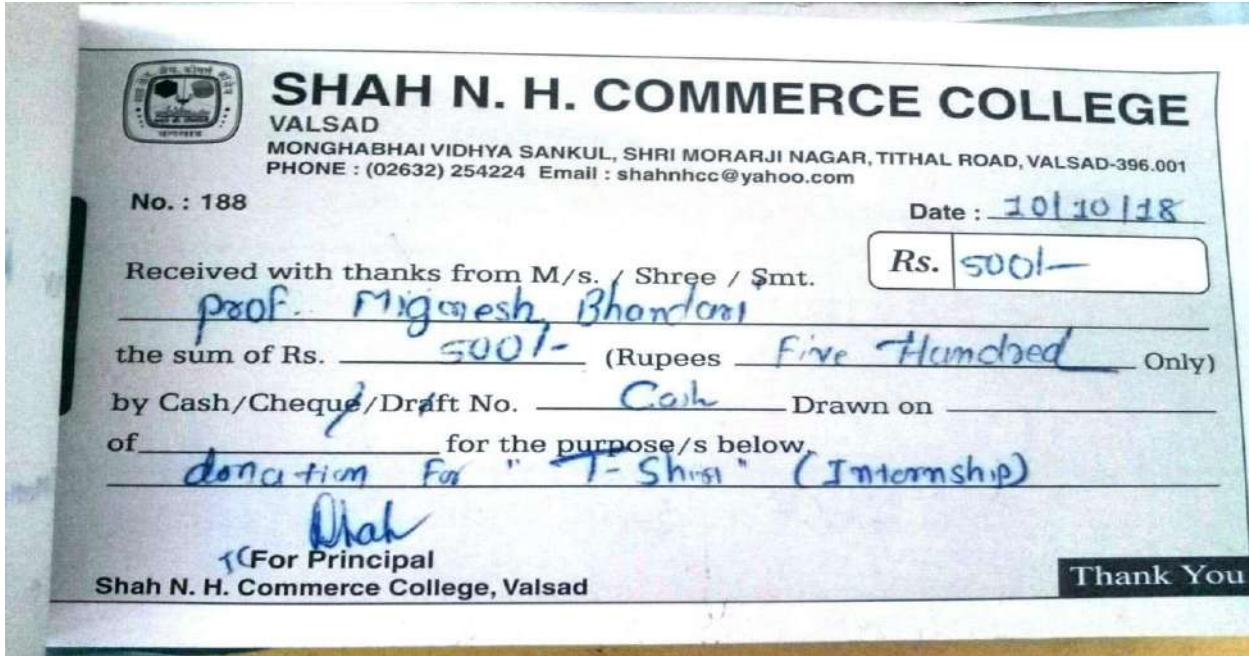 SHAH N. H. COMMERCE COLLEGE
VALSAD
MONGHABHAI VIDHYA SANKUL, SHRI MORARJI NAGAR, TITHAL ROAD, VALSAD-396.001
PHONE : (02632) 254224 Email : shahnhcc@yahoo.com
No. : 188
Date : 10/10/18
Rs. 500/-
Received with thanks from M/s. / Shree / Smt.
Prof. Bhandari
the sum of Rs. 500/- (Rupees Five Hundred Only)
by Cash/Cheque/Draft No. Cash Drawn on
of for the purpose/s below,
donation For "T-Shirt" (Internship)
For Principal
Shah N. H. Commerce College, Valsad
Thank You